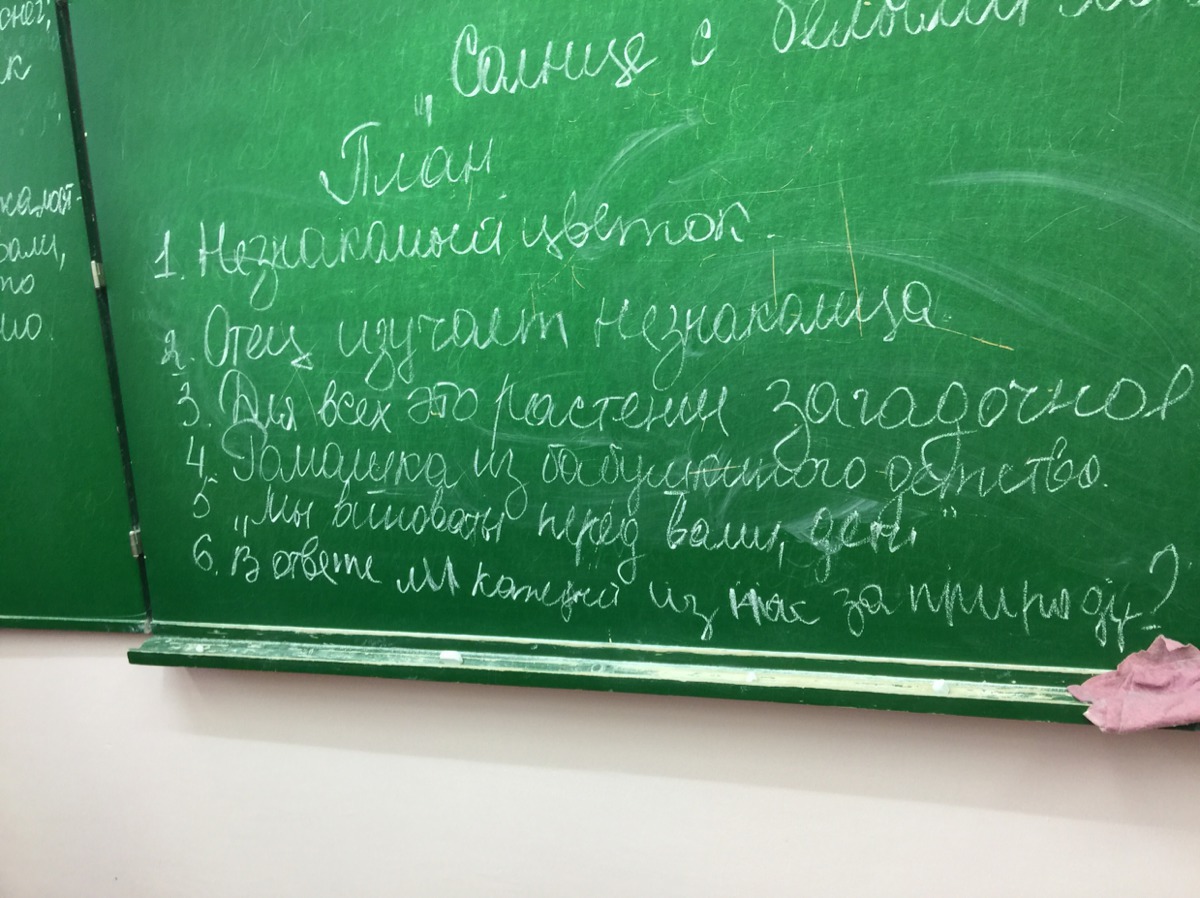 снег,
к
"Солнце с белыми
План
1. Незнакомый цветок.
2. Отец изучает незнакомца
3. Для всех это растение загадочное
4. Ромашка из бабушкиного детства.
5 "Мы виноваты перед вами, дети"
6. В ответе ли каждый из нас за природу?